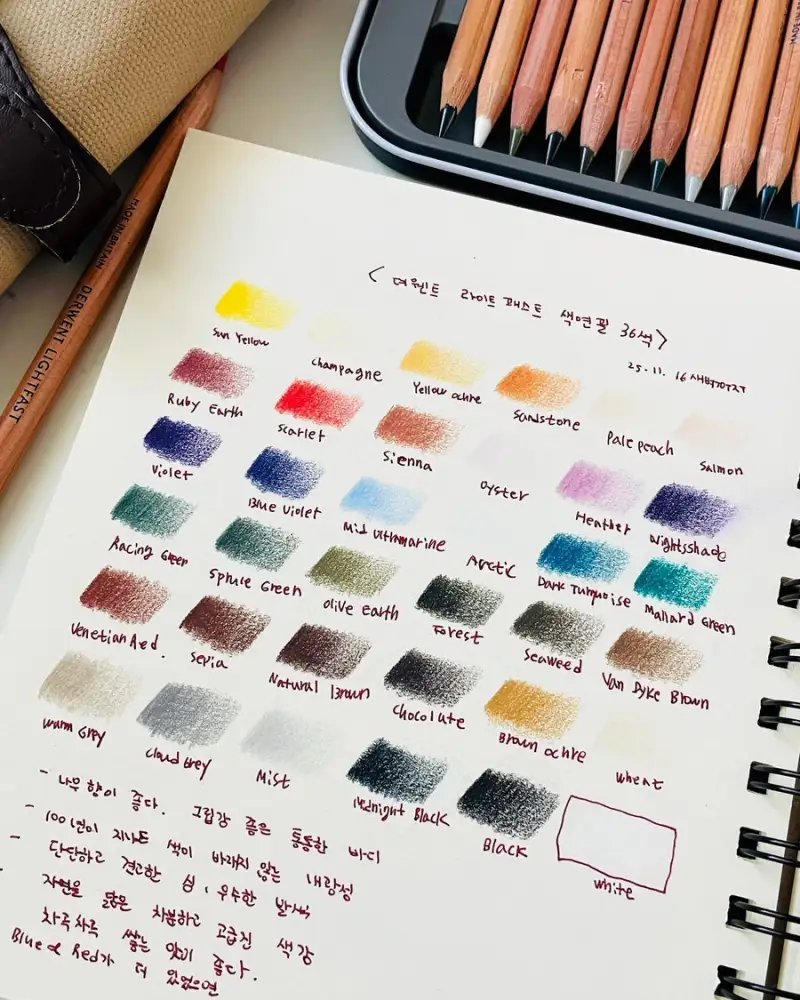 MADE IN BRITAIN
DERWENT LIGHTFAST
< 더웬트 라이트패스트 색연필 36색 >
25. 11. 16
Sun Yellow Champagne Yellow ochre Sandstone Pale peach Salmon
Ruby Earth Scarlet Sienna Oyster Heather Nightsshade
Violet Blue Violet Mid Ultramarine Arctic Dark Turquoise Mallard Green
Racing Green Spruce Green Olive Earth Forest Seaweed Van Dyke Brown
Venetian Red. Sepia Natural Brown Chocolate Brown ochre Wheat
Warm Grey Cloud Grey Mist Midnight Black Black White
- 나무 향이 좋다. 그립감 좋은 통통한 바디
- 100년이 지나도 색이 바래지 않는 내광성
- 단단하고 견고한 심, 우수한 발색
자연을 닮은 차분하고 고급진 색감
차곡차곡 쌓는 맛이 좋다.
Blue & Red가 더 있었으면